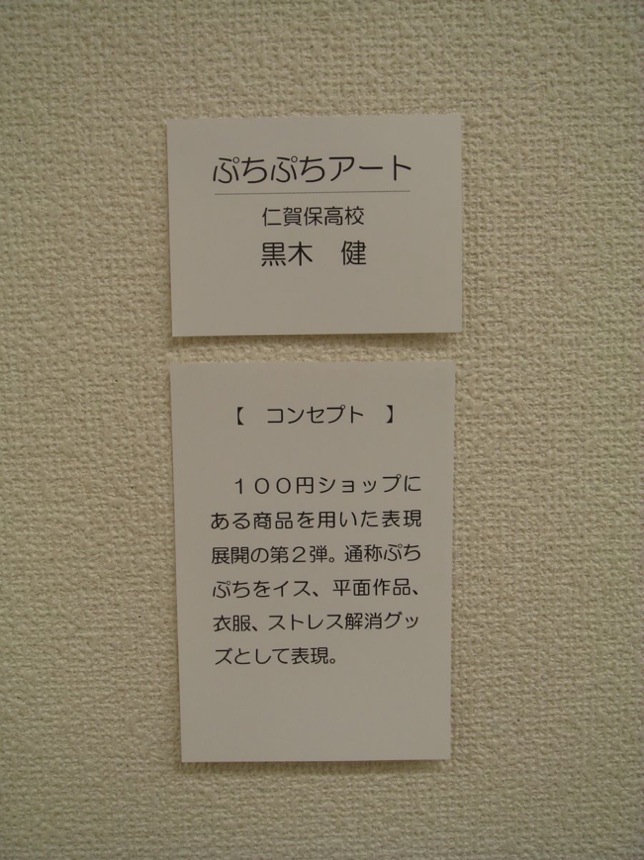 ぷちぷちアート
仁賀保高校
黒木　健
【　コンセプト　】
１００円ショップに
ある商品を用いた表現
展開の第２弾。通称ぷち
ぷちをイス、平面作品、
衣服、ストレス解消グッ
ズとして表現。